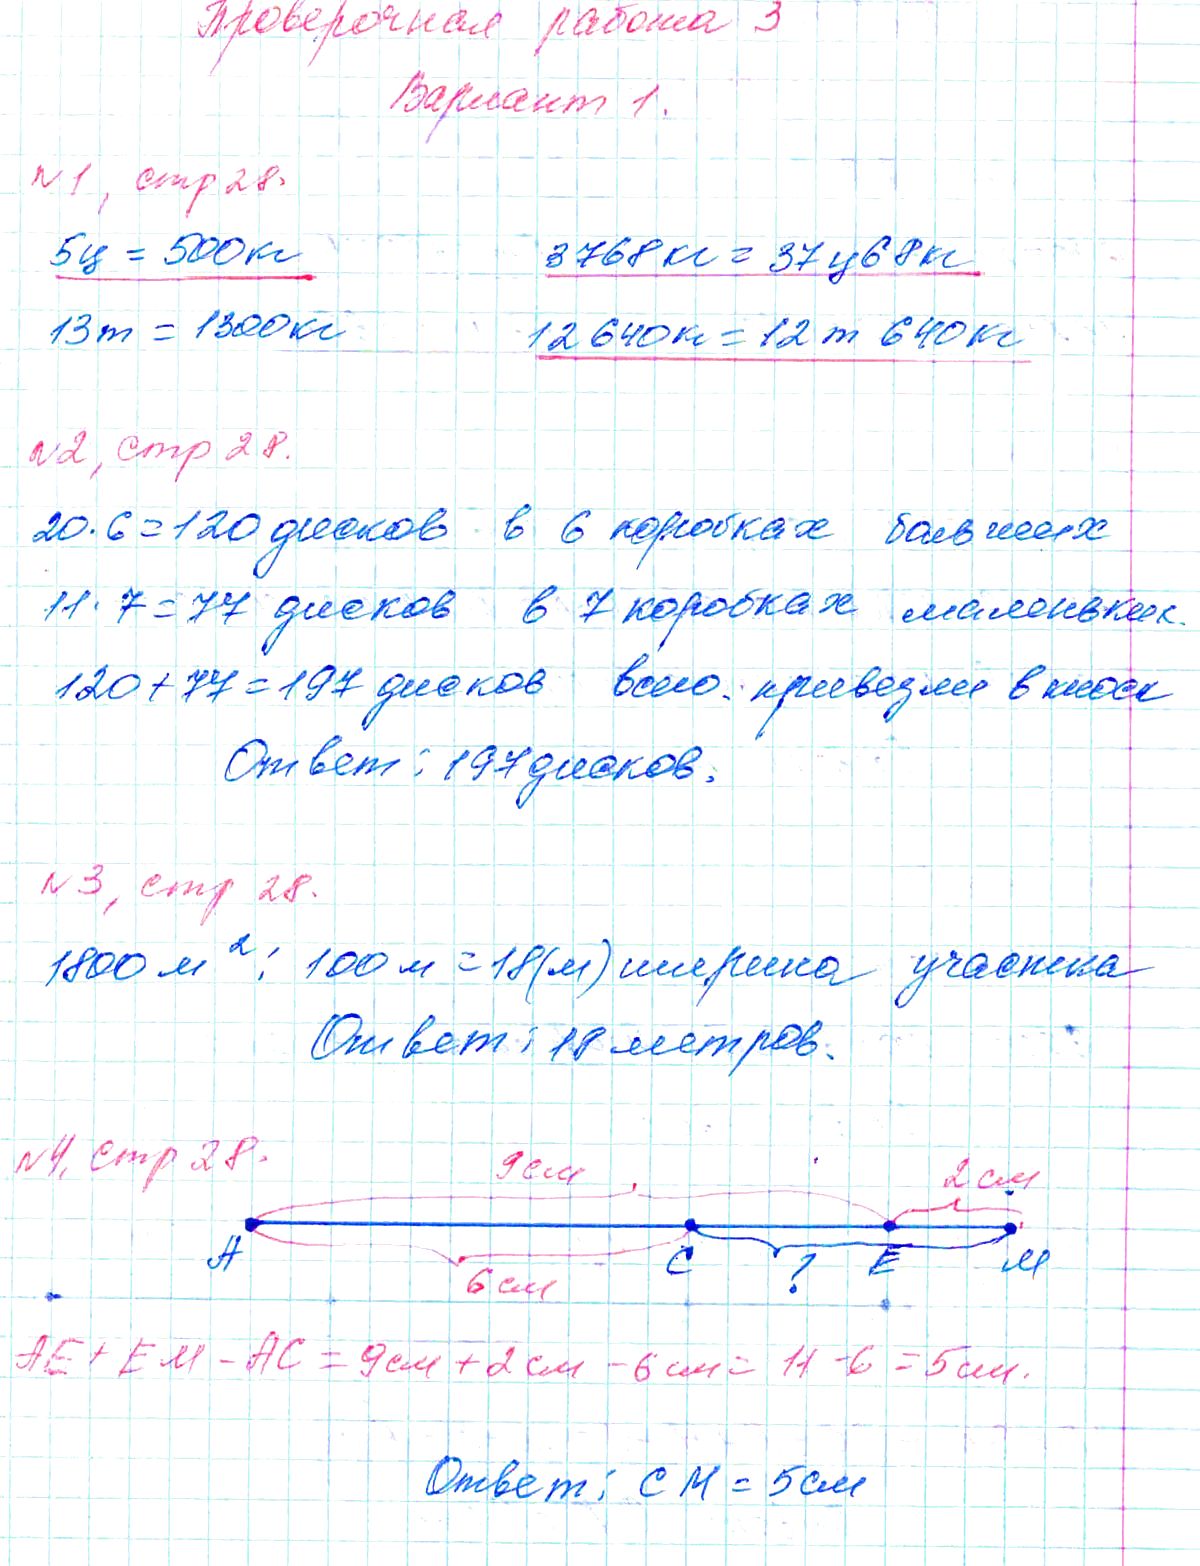 Проверочная работа 3
Вариант 1.
№1, стр 28.
5ц = 500кг 3768кг = 37ц68кг
13т = 1300кг 12640кг = 12т 640кг
№2, стр 28.
20·6=120 дисков в 6 коробках больших
11·7=77 дисков в 7 коробках маленьких.
120+77=197 дисков всего привезли в киоск
Ответ: 197 дисков.
№3, стр 28.
1800 м²: 100 м = 18(м) ширина участка
Ответ: 18 метров.
№4, стр 28.
9см 2см
А С Е М
6см ?
АЕ + ЕМ - АС = 9см + 2см - 6см = 11 - 6 = 5см.
Ответ: СМ = 5см